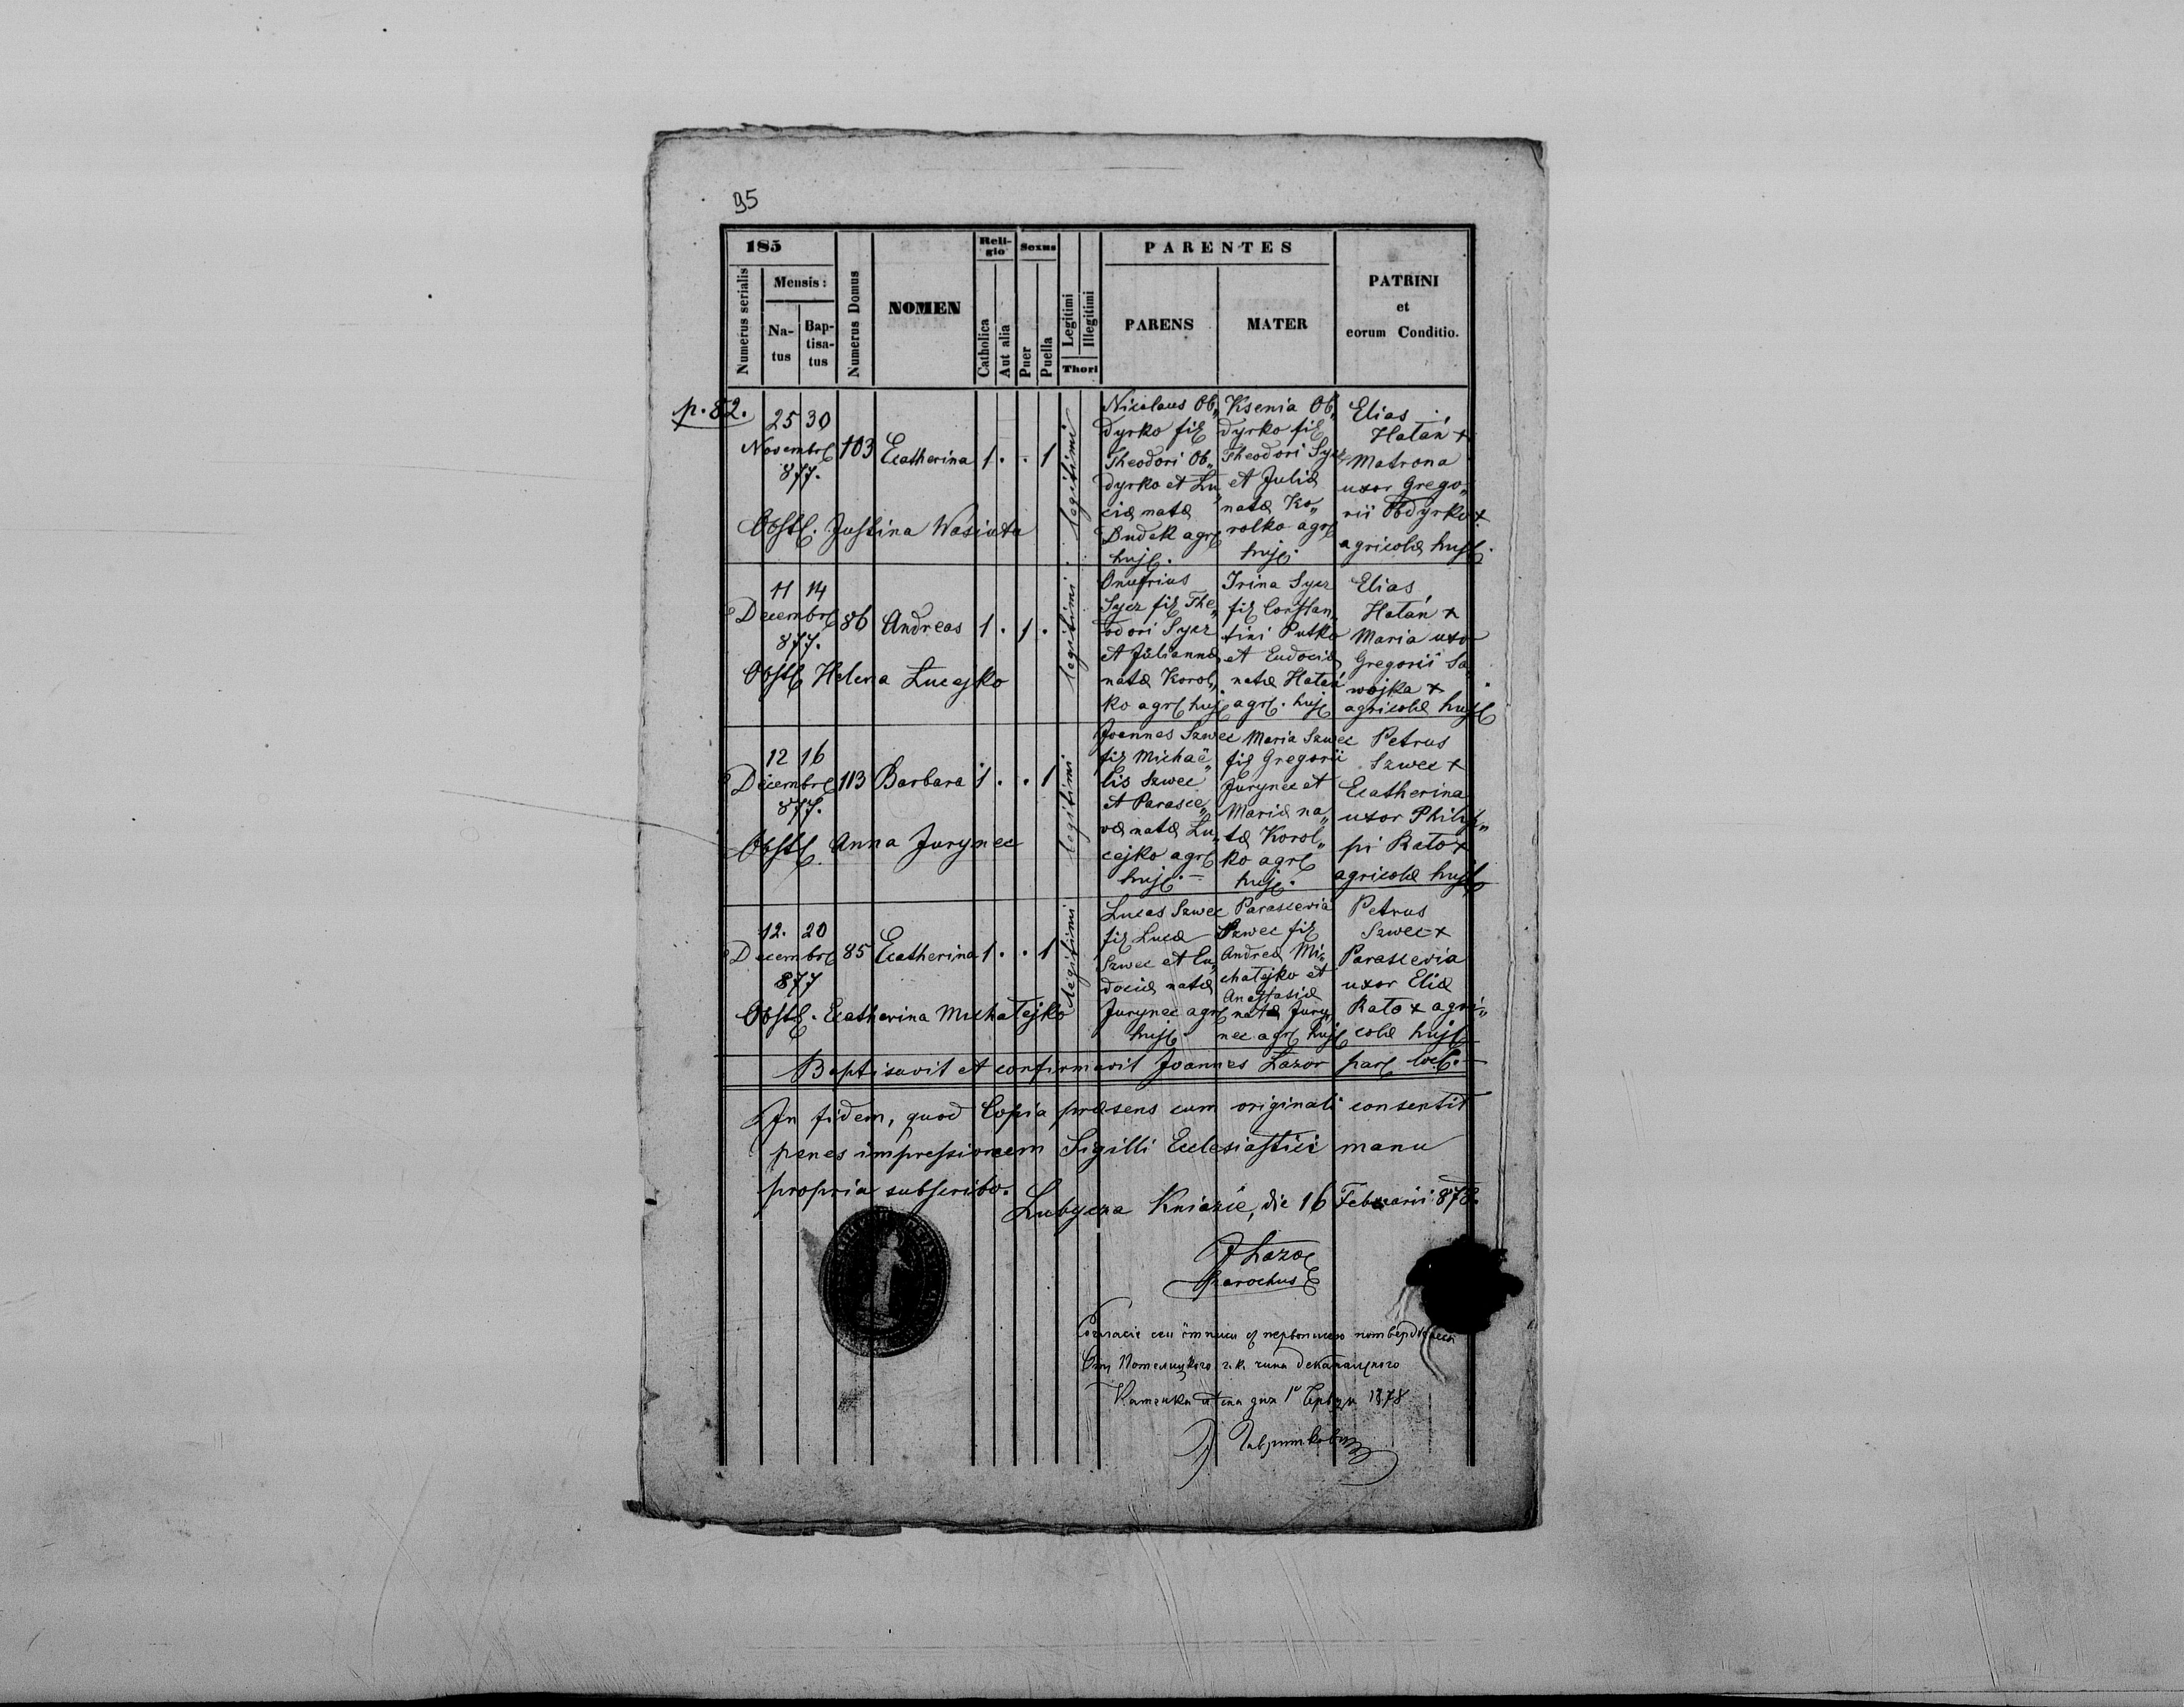 95
185
Numerus serialis
Mensis:
Na-
tus
Bap-
tisa-
tus
Numerus Domus
NOMEN
Reli-
gio
Catholica
Aut alia
Sexus
Puer
Puella
Legitimi
Illegitimi
Thori
PARENTES
PARENS
MATER
PATRINI
et
eorum Conditio.
p. 82.
25 30
Novembr
877.
103
Ecatherina
1 . . 1
legitimi
Nicolaus Ob„
dyrko fil
Theodori Ob„
dyrko et Lu„
ciæ natæ
Dudek agr
huj.
Ksenia Ob„
dyrko fil
Theodori Sycz
et Juliæ
natæ Ko„
rolko agr
huj.
Elias
Hałań +
Matrona
uxor Grego„
rii Obdyrko +
agricolæ huj.
Obst. Justina Wasiuta
11 14
Decembr
877.
86
Andreas
1 . 1 .
legitimi
Onufrius
Sycz fil The„
odori Sycz
et Julianna
natæ Korol„
ko agr huj
Irina Sycz
fil Constan„
tini Putko
et Eudociæ
natæ Hałań
agr. huj
Elias
Hałań +
Maria uxor
Gregorii Sa„
wojka +
agricolæ huj
Obst Helena Lucejko
12 16
Decembr
877.
113
Barbara
1 . . 1
legitimi
Joannes Szwec
fil Michaë„
lis Szwec
et Parasce„
væ natæ Lu„
cejko agr
huj. –
Maria Szwec
fil Gregorii
Jurynec et
Mariæ na„
tæ Korol„
ko agr
huj.
Petrus
Szwec +
Ecatherina
uxor Philip„
pi Rato +
agricolæ huj
Obst. Anna Jurynec
12. 20
Decembr
877
85
Ecatherina
1 . . 1
legitimi
Lucas Szwec
fil Lucæ
Szwec et Eu„
dociæ natæ
Jurynec agr
huj.
Parascevia
Szwec fil
Andreæ Mi„
chałejko et
Anastasiæ
natæ Jury„
nec agr huj
Petrus
Szwec +
Parascevia
uxor Eliæ
Rato + agri„
colæ huj
Obst. Ecatherina Michałejko
Baptisavit et confirmavit Joannes Lazor par loc.
In fidem, quod Copia præsens cum originali consentit
penes impressionem Sigilli Ecclesiastici manu
propria subscribo.
Lubycza Kniazie, die 16 Februarii 878.
J Lazor
Parochus
1878